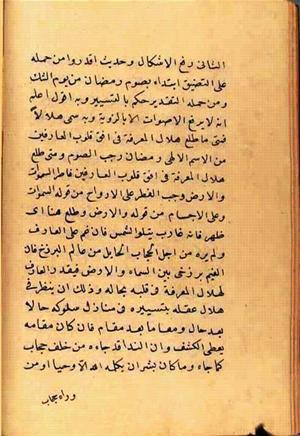 الثانى رفع الاشكال وحديث اقدروا من حمله
على التضييق ابتداء بصوم رمضان من يوم الشك
ومن حمله التقدير حكم بالتسيير وبه اقول اعلم
انه لا يرفع الاصوات الا بالرؤية وبه سمى هلالا
فمتى ما طلع هلال المعرفة فى افق قلوب العارفين
من الاسم الالهى رمضان وجب الصوم ومتى طلع
هلال المعرفة فى افق قلوب العارفين فاطر السموات
والارض وجب الفطر على الارواح من قوله السموات
وعلى الاجسام من قوله والارض وطلع هنا اى
ظهر فانه غارب يتلو الشمس فان غم على العارف
ولم يره من اجل الحجاب الحايل من عالم البرزخ فان
الغيم برزخى بين السماء والارض فيقدر العارف
لهلال المعرفة فى قلبه بحاله وذلك ان ينظر فى
هلال عقله بتسييره فى منازل سلوكه حالا
بعد حال ومقاما بعد مقام فان كان مقامه
يعطى الكشف وان الندا قد جاءه من خلف حجاب
كما جاء وما كان لبشر ان يكلمه الله الا وحيا او من
وراء حجاب